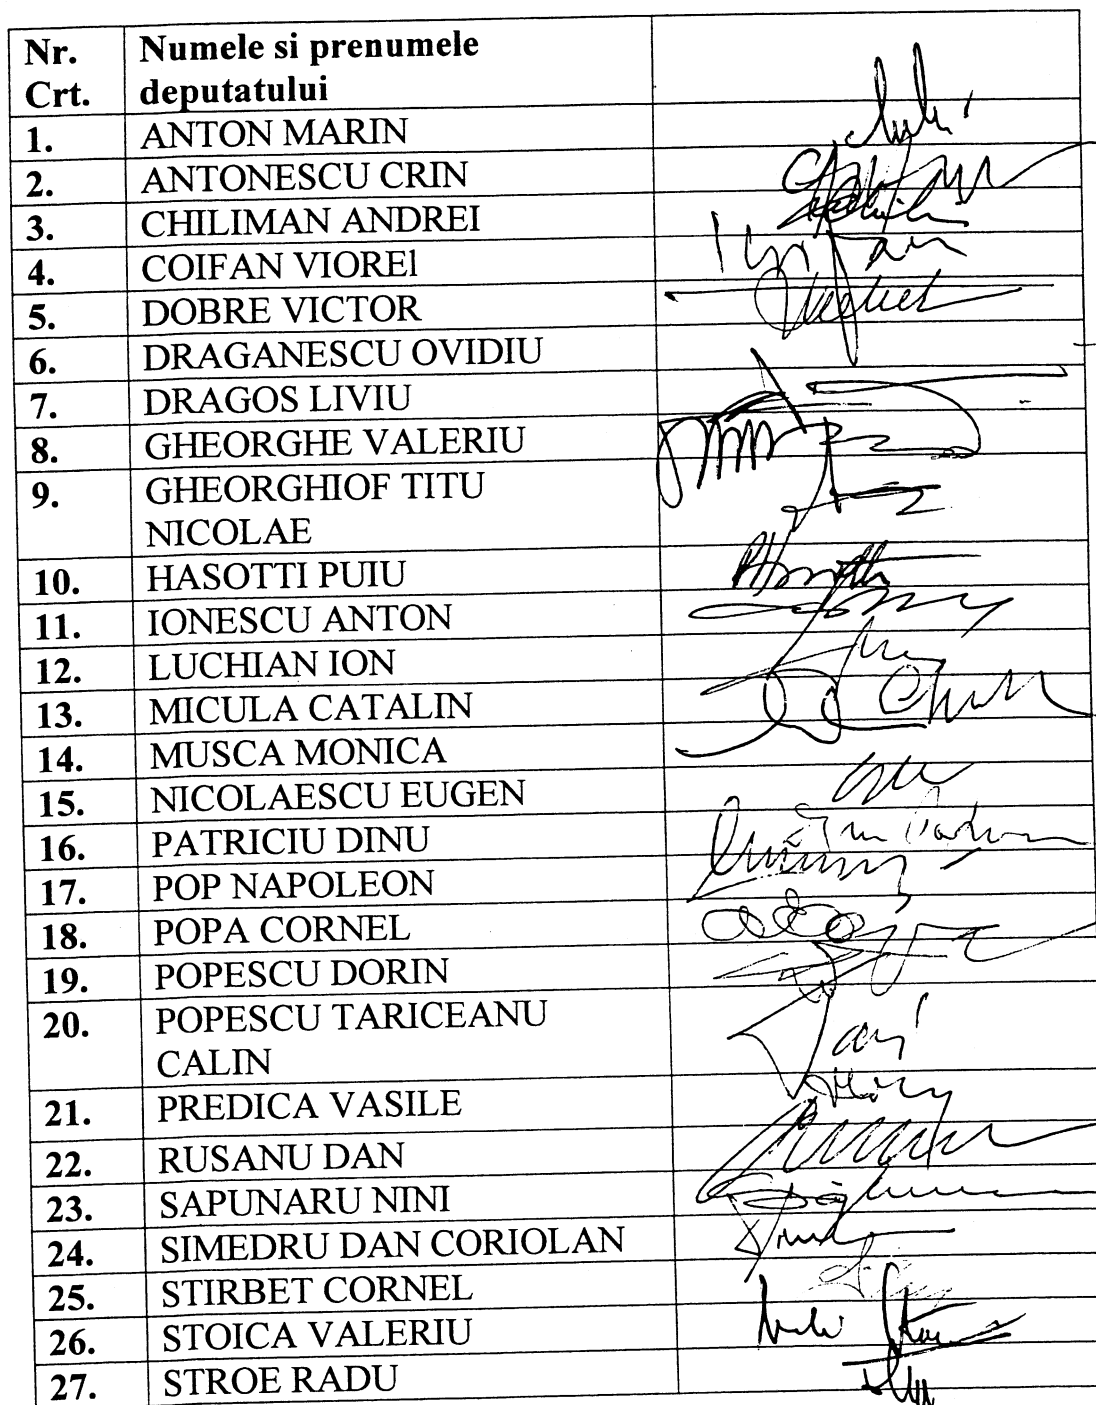 Nr. Crt. Numele si prenumele deputatului
1. ANTON MARIN
2. ANTONESCU CRIN
3. CHILIMAN ANDREI
4. COIFAN VIOREl
5. DOBRE VICTOR
6. DRAGANESCU OVIDIU
7. DRAGOS LIVIU
8. GHEORGHE VALERIU
9. GHEORGHIOF TITU
NICOLAE
10. HASOTTI PUIU
11. IONESCU ANTON
12. LUCHIAN ION
13. MICULA CATALIN
14. MUSCA MONICA
15. NICOLAESCU EUGEN
16. PATRICIU DINU
17. POP NAPOLEON
18. POPA CORNEL
19. POPESCU DORIN
20. POPESCU TARICEANU
CALIN
21. PREDICA VASILE
22. RUSANU DAN
23. SAPUNARU NINI
24. SIMEDRU DAN CORIOLAN
25. STIRBET CORNEL
26. STOICA VALERIU
27. STROE RADU